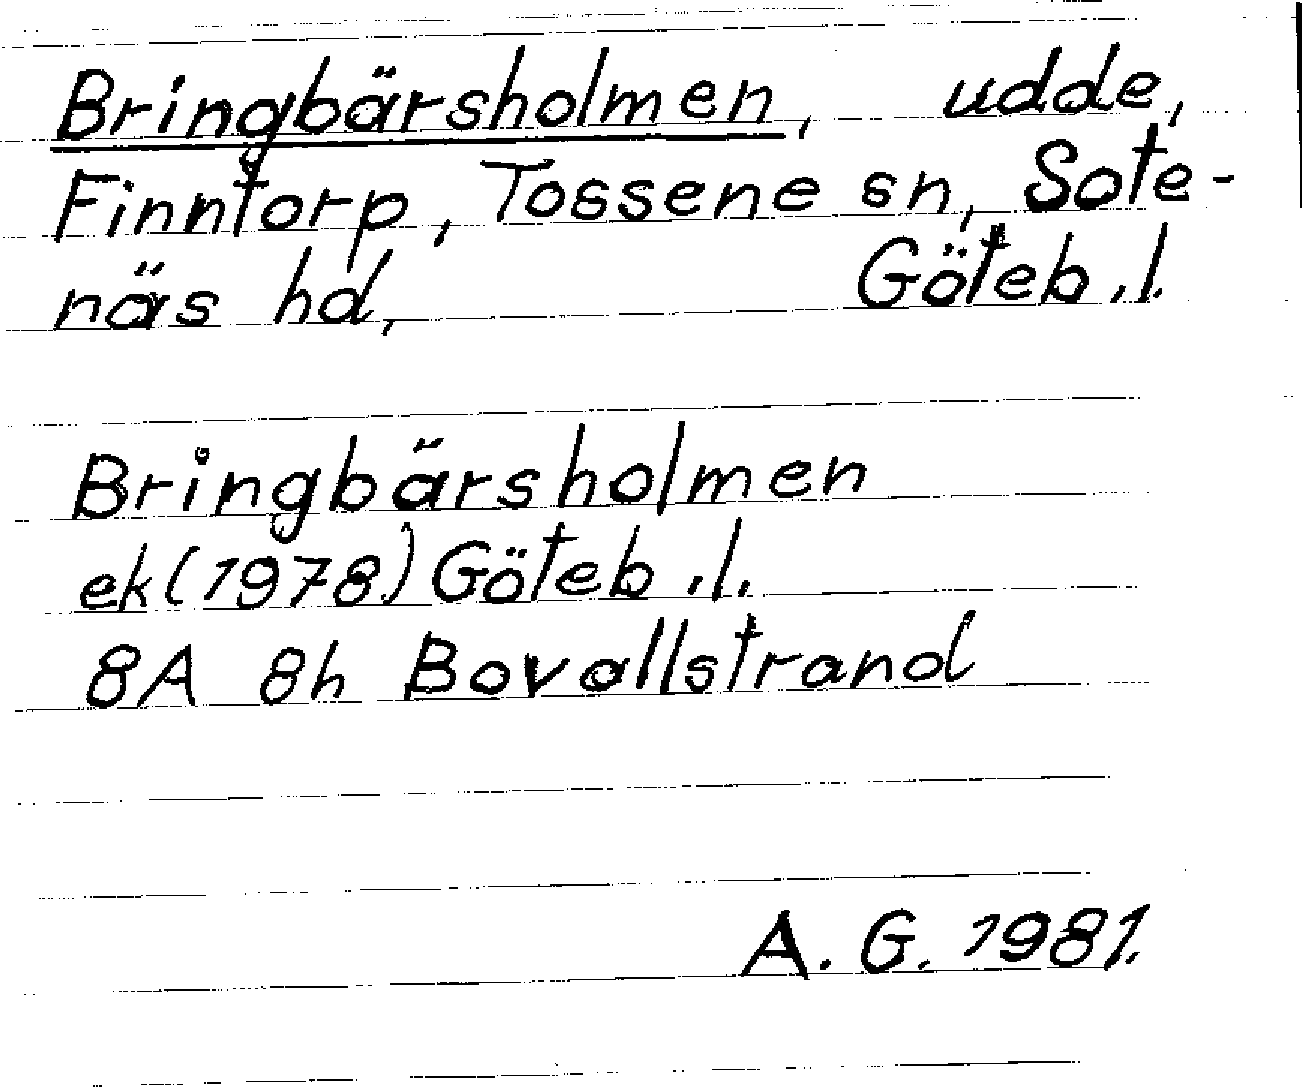 Bringbärsholmen, udde,
Finntorp, Tossene sn, Sote-
näs hd, Göteb.l.
Bringbärsholmen
ek(1978) Göteb.l.
8A 8h Bovallstrand
A. G. 1981.